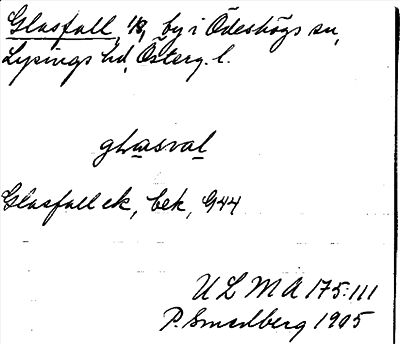 Glasfall, 1/8, by i Ödeshögs sn,
Lysings hd, Österg. l.
glasval
Glasfall ek, bek, G44
ULMA 175:111
P. Smedberg 1905